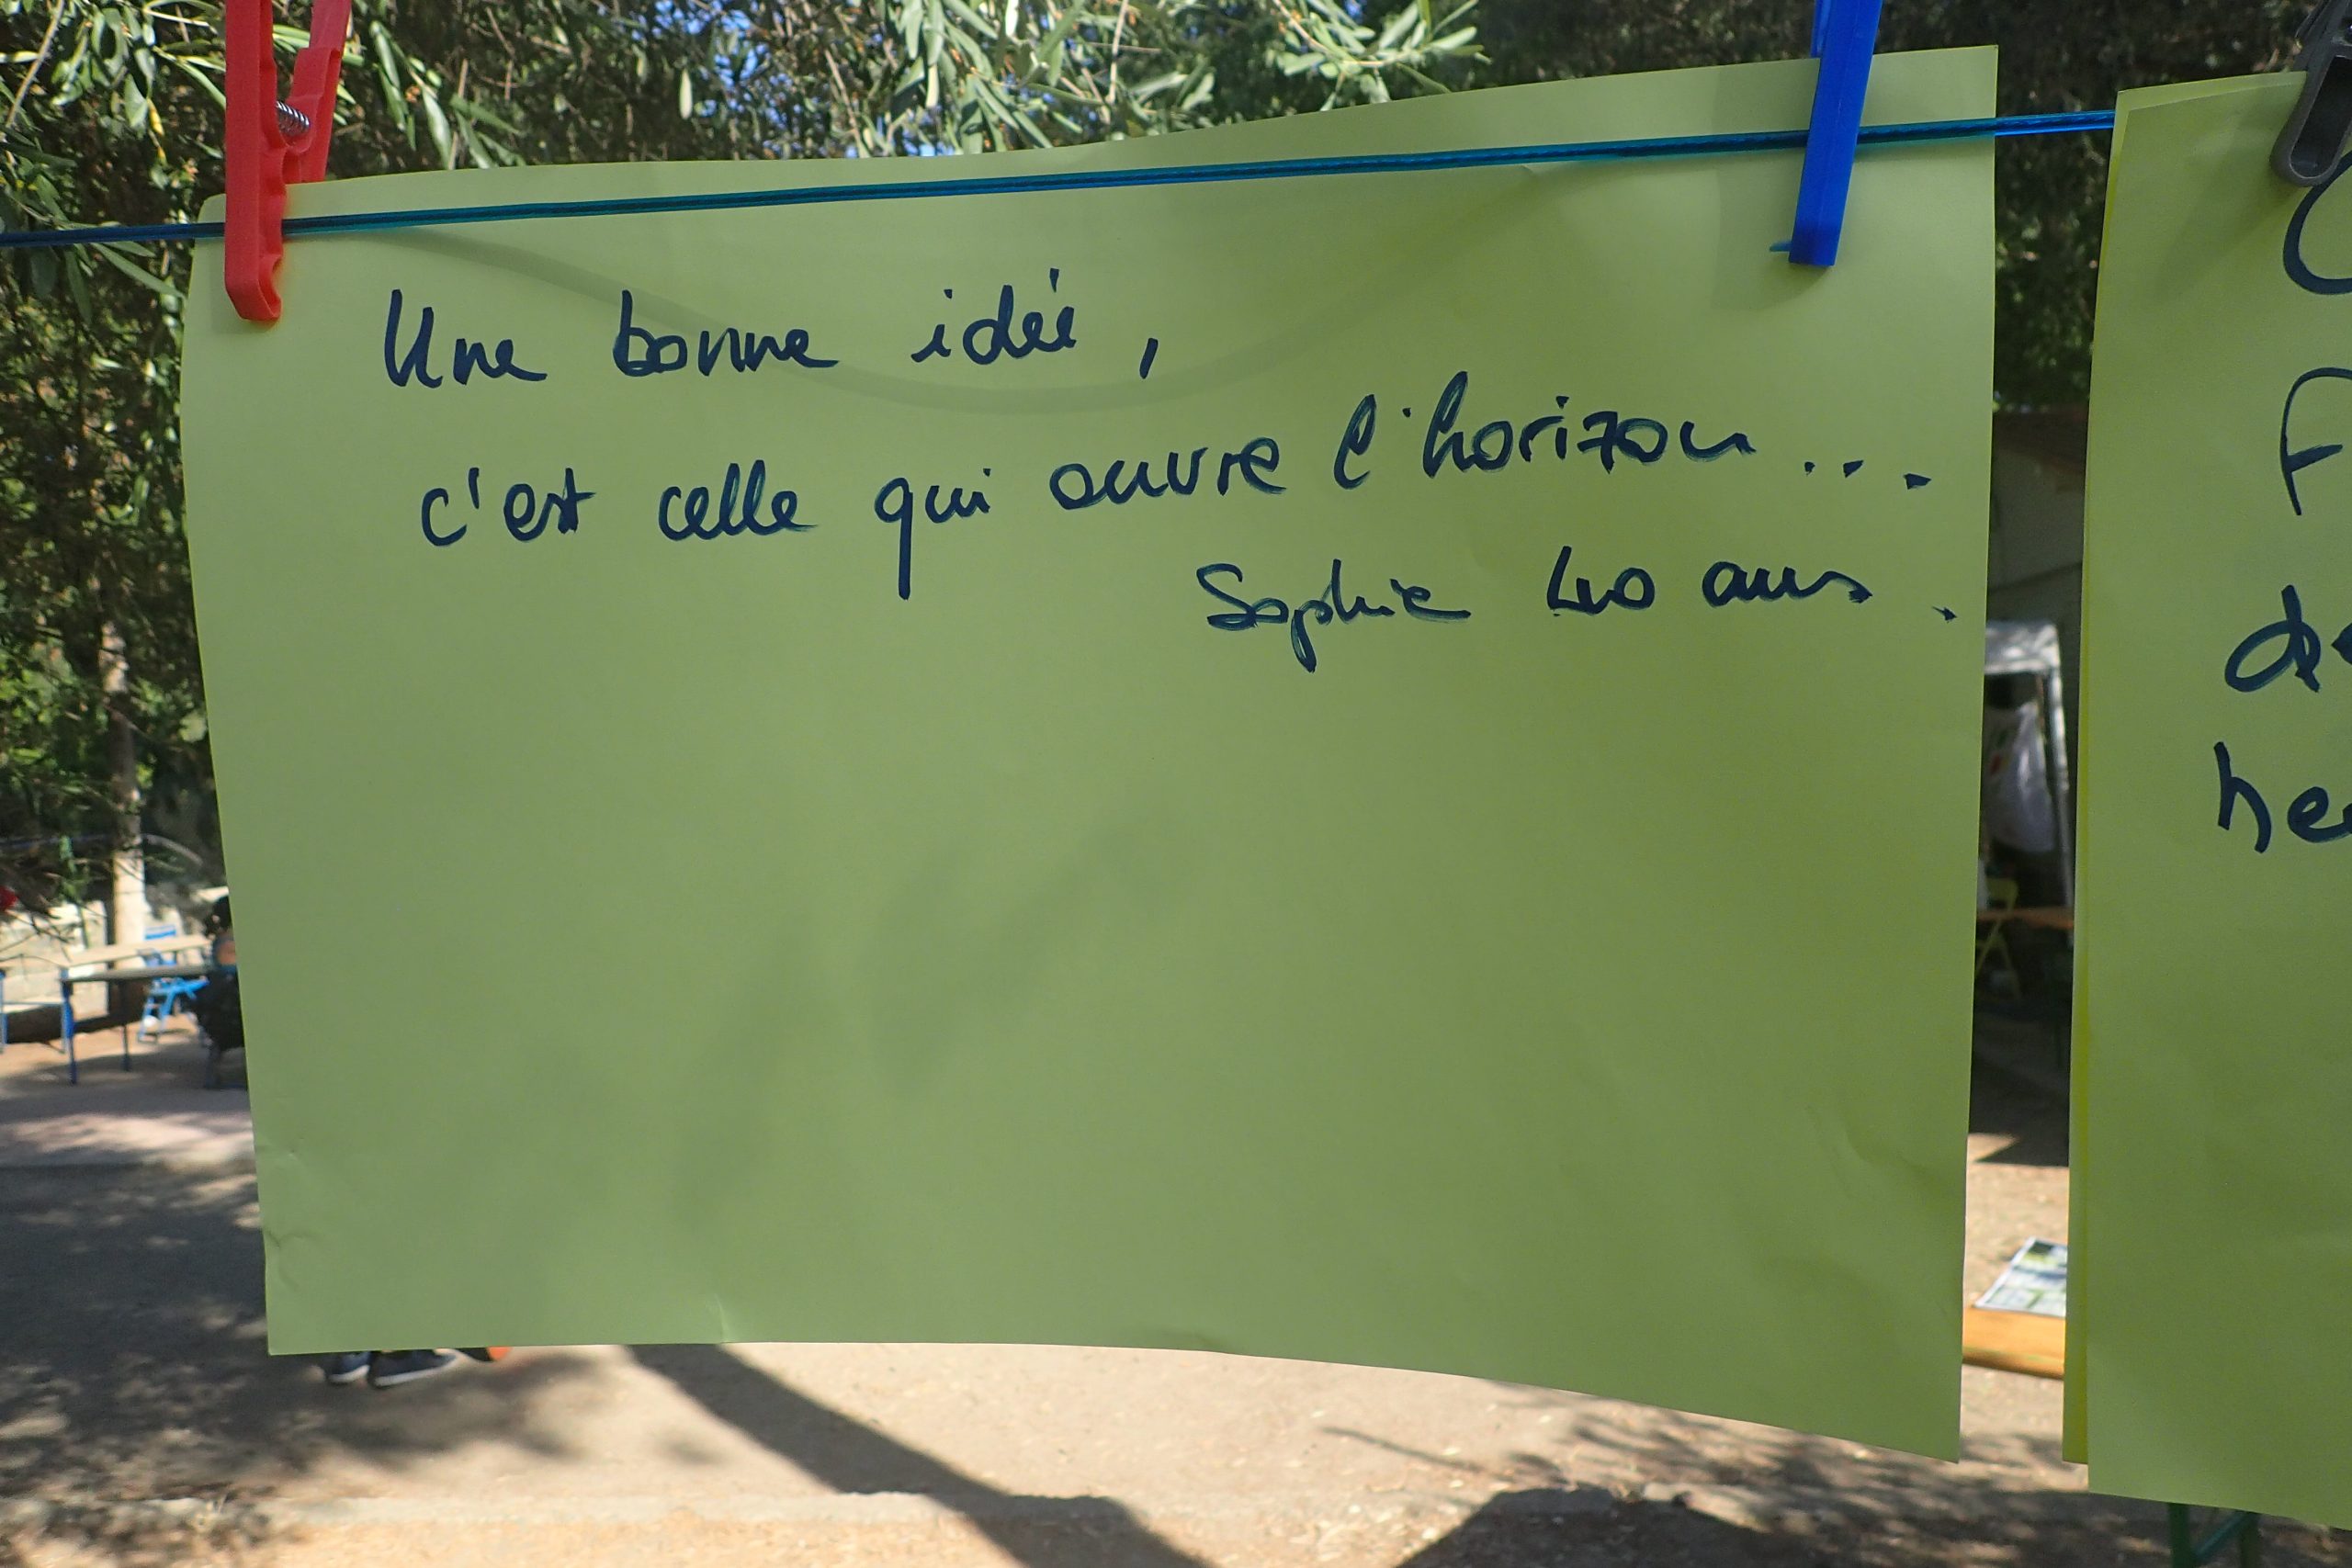 Une bonne idée,
c'est celle qui ouvre l'horizon...
Sophie 40 ans.